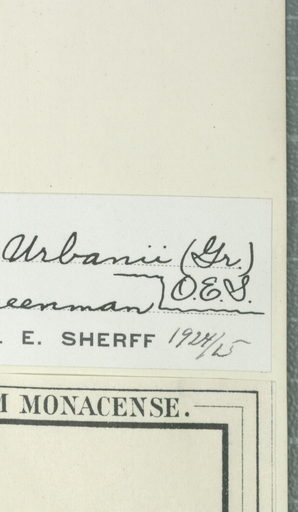 Urbanii (Gr.)
eenman O.E.S.
. E. SHERFF 1924/25
M MONACENSE.